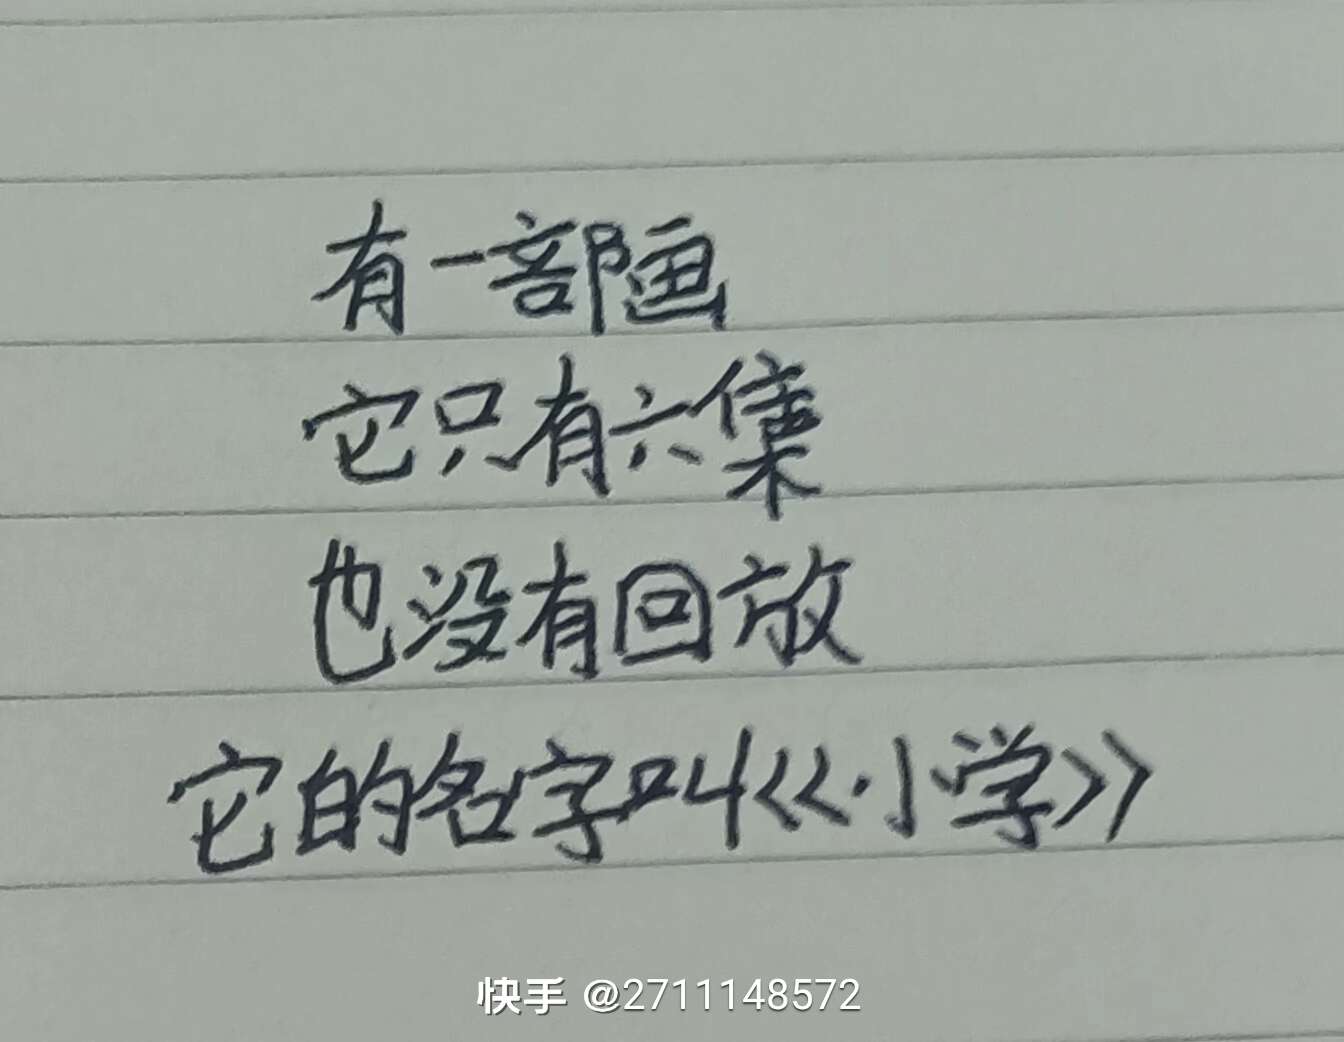 有一部画
它只有六集
也没有回放
它的名字叫《小学》
快手 @2711148572